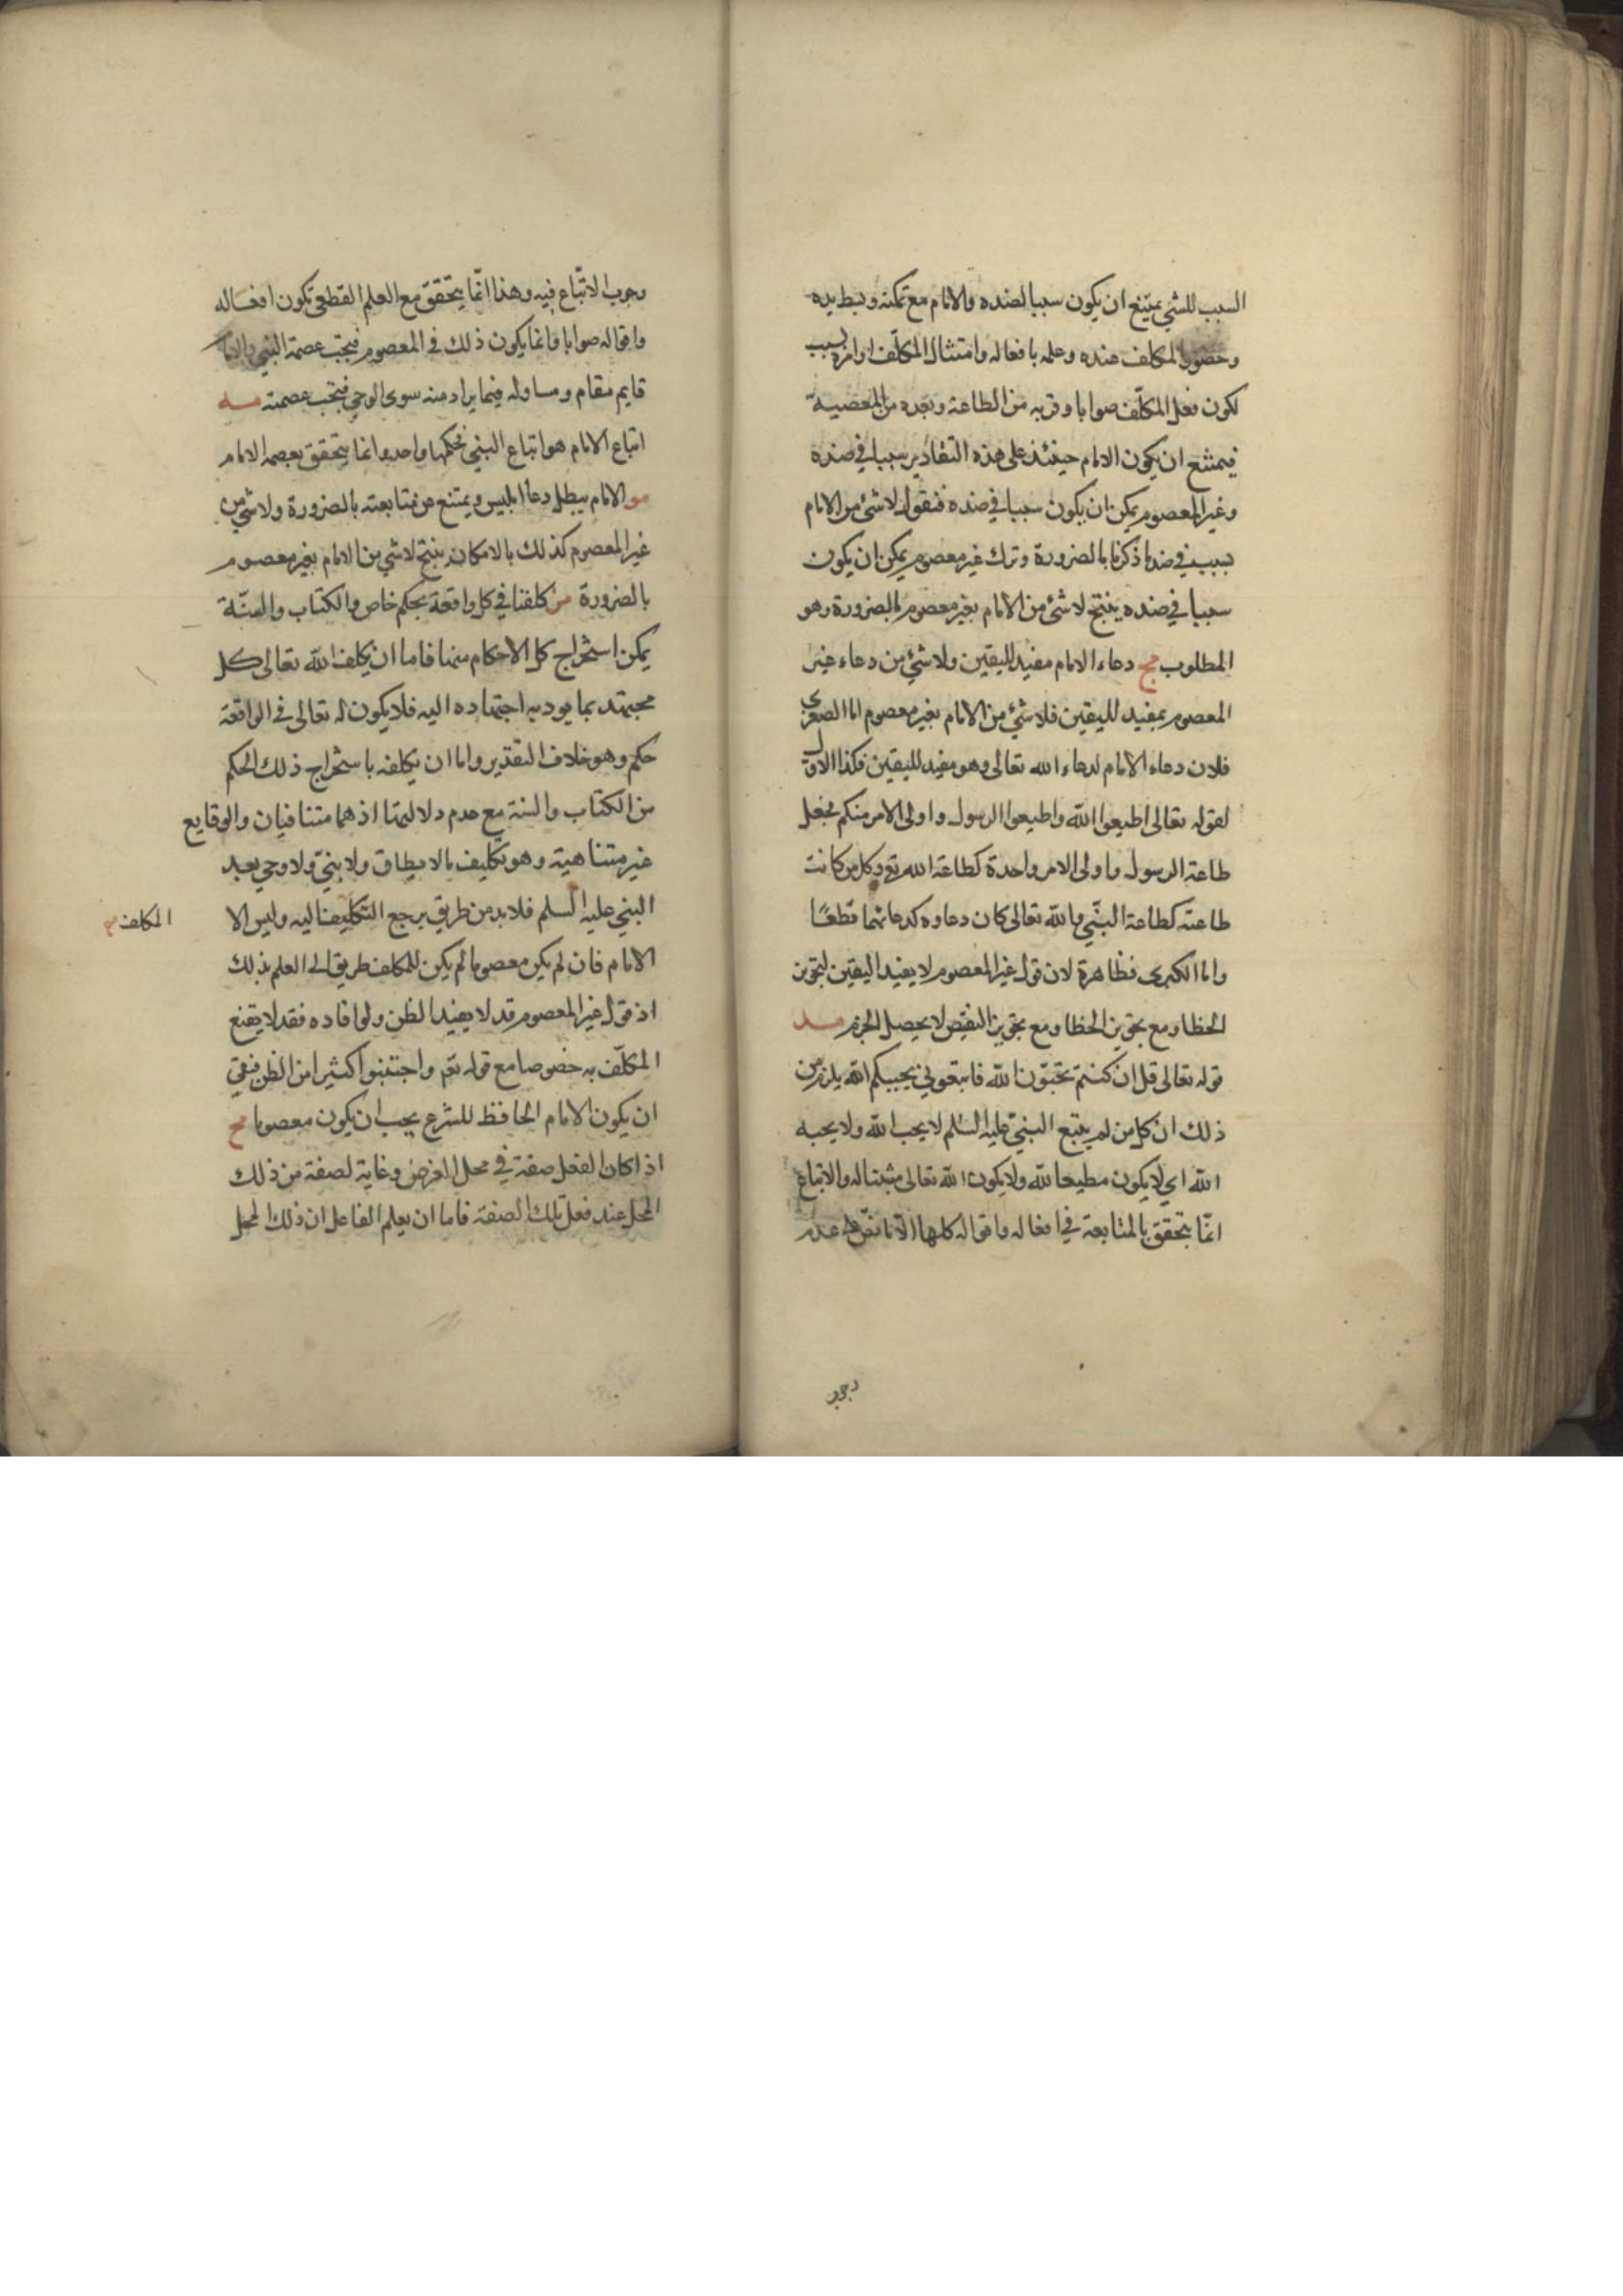 السبب للشئ يمتنع ان يكون سببا لضده والامام مع تمكنه وبسط يده
وحصول المكلف عنده وعلمه بافعاله وامتثال المكلف اوامره سبب
لكون فعل المكلف صوابا وقربه من الطاعة وبعده من المعصية
فيمتنع ان يكون الامام حينئذ على هذه التقادير سببا في ضده
وغير المعصوم يمكن ان يكون سببا في ضده فنقول لاشئ من الامام
بسبب في ضد ما ذكرنا بالضرورة وترك غير معصوم يمكن ان يكون
سببا في ضده ينتج لاشئ من الامام بغير معصوم بالضرورة وهو
المطلوب مج دعاء الامام مفيد لليقين ولاشئ من دعاء غير
المعصوم بمفيد لليقين فلاشئ من الامام بغير معصوم اما الصغرى
فلان دعاء الامام لدعاء الله تعالى وهو مفيد لليقين فكذا الاول
لقوله تعالى اطيعوا الله واطيعوا الرسول واولى الامر منكم فجعل
طاعة الرسول واولى الامر واحدة كطاعة الله تع وكل من كانت
طاعته كطاعة النبي والله تعالى كان دعاوه كدعائهما قطعًا
واما الكبرى فظاهرة لان قول غير المعصوم لا يفيد اليقين لتجويز
الخطا ومع تجويز الخطا ومع تجويز النقيض لا يحصل الجزم مسد
قوله تعالى قل ان كنتم تحبّون الله فاتبعوني يحببكم الله يلزم من
ذلك ان كل من لم يتبع النبيّ عليه السلم لا يحب الله ولا يحبه
الله اي لا يكون مطيعا لله ولا يكون الله تعالى مثيبتاله والاتباع
انّما يتحقق بالمتابعة في افعاله واقواله كلها الا ما نصّ على عدم
وجوب
وجوب الاتّباع فيه وهذا انّما يتحقق مع العلم القطعى بكون افعاله
واقواله صوابا وانما يكون ذلك في المعصوم فيجب عصمة النبي والامام
قايم مقام ومساو له فيما يراد منه سوى الوحي فيجب عصمته مسه
اتباع الامام هو اتباع النبي فحكمها واحد وانما يتحقق بعصمه الامام
سو الامام يبطل دعا ابليس ويمتنع من متابعته بالضرورة ولاشئ من
غير المعصوم كذلك بالامكان ينتج لاشي من الامام بغير معصوم
بالضرورة سز كلفنا في كل واقعة بحكم خاص والكتاب والسنّة
يمكن استخراج كل الاحكام منها فاما ان يكلف الله تعالى كل
مجتهد بما يوديه اجتهاده اليه فلا يكون له تعالى في الواقعة
حكم وهو خلاف التقدير واما ان يكلفه باستخراج ذلك الحكم
من الكتاب والسنة مع عدم دلالتهما اذ هما متنافيان والوقايع
غير متناهية وهو تكليف ما لا يطاق ولا بنيّ ولا وحي بعد
النبي عليه السلم فلابد من طريق يرجع التكليفنا ليه وليس الا
المكلف
الامام فان لم يكن معصوما لم يكن للمكلف طريق الى العلم بذلك
اذ قول غير المعصوم قد لا يفيد الظن ولو افاده فقد لا يقنع
المكلّف به خصوصا مع قوله تع واجتنبوا كثيرا من الظن فبقي
ان يكون الامام الحافظ للشرع يجب ان يكون معصوما مح
اذا كان الفعل صفة في محل الغرض وغاية لصفة من ذلك
المحل عند فعل تلك الصفة فاما ان يعلم الفاعل ان ذلك المحل